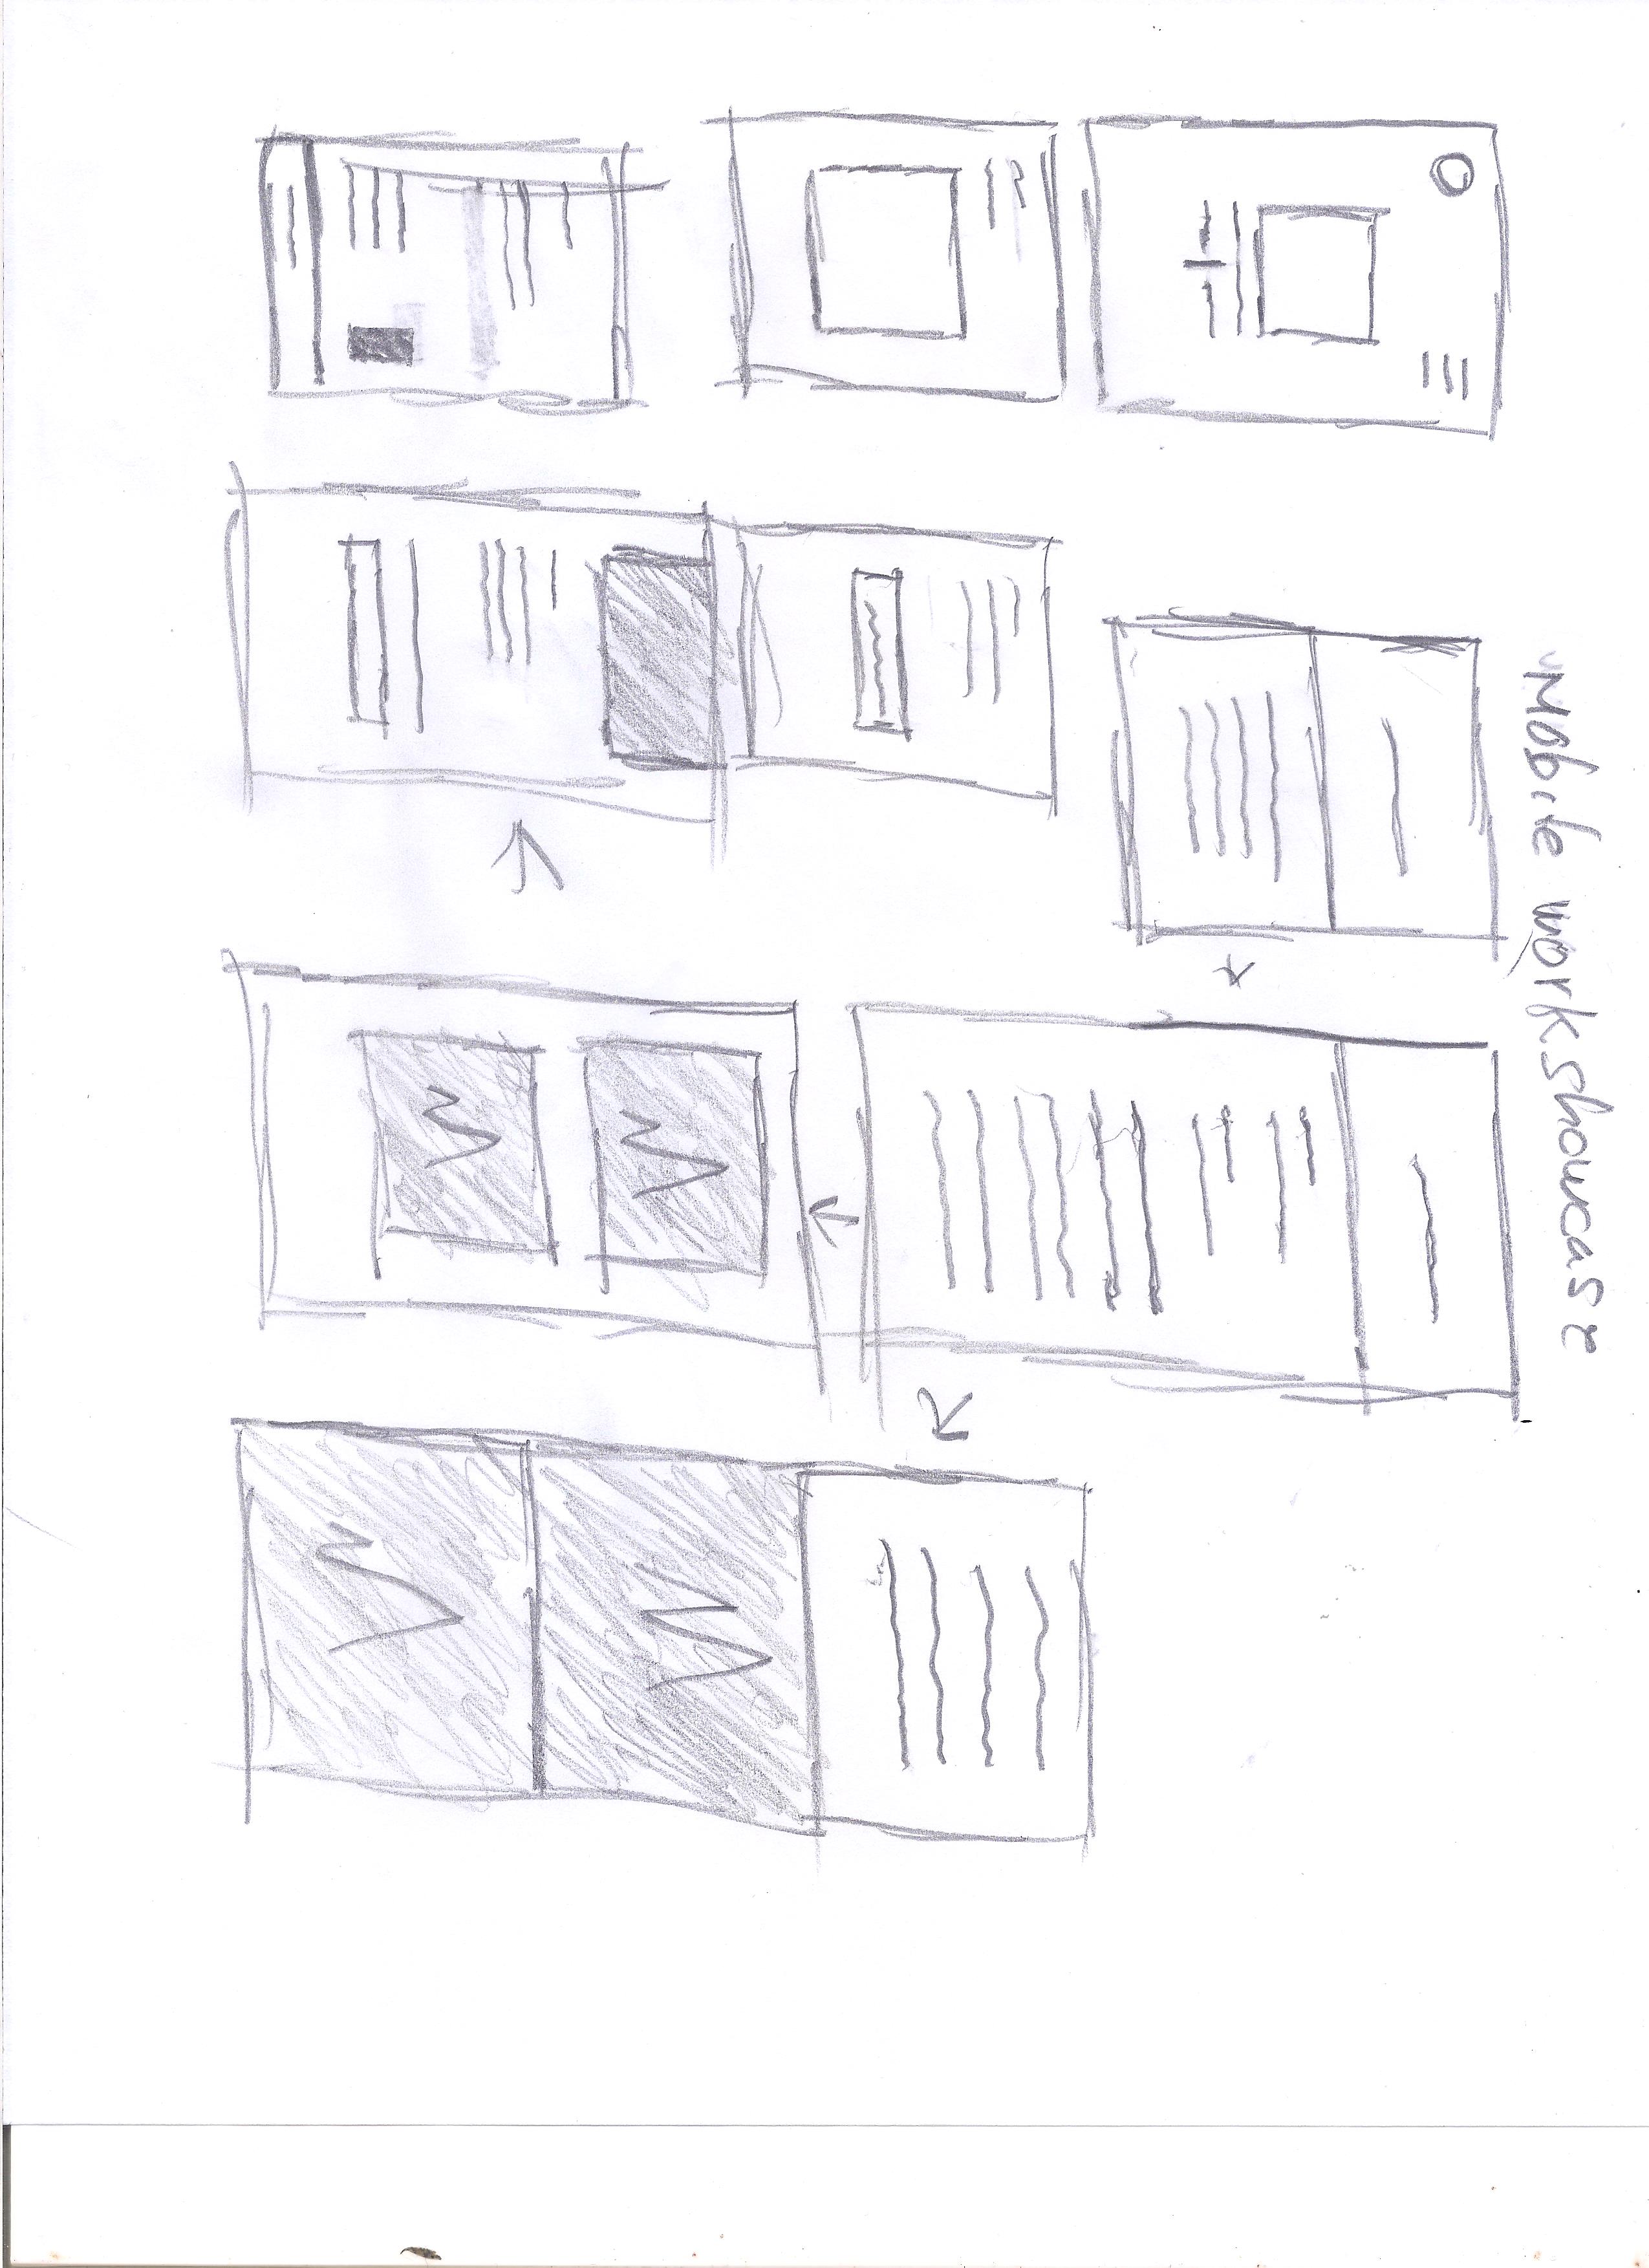 Mobile work showcase